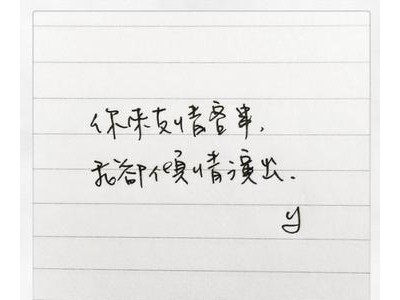 你来友情客串,
我卻傾情演出.
y